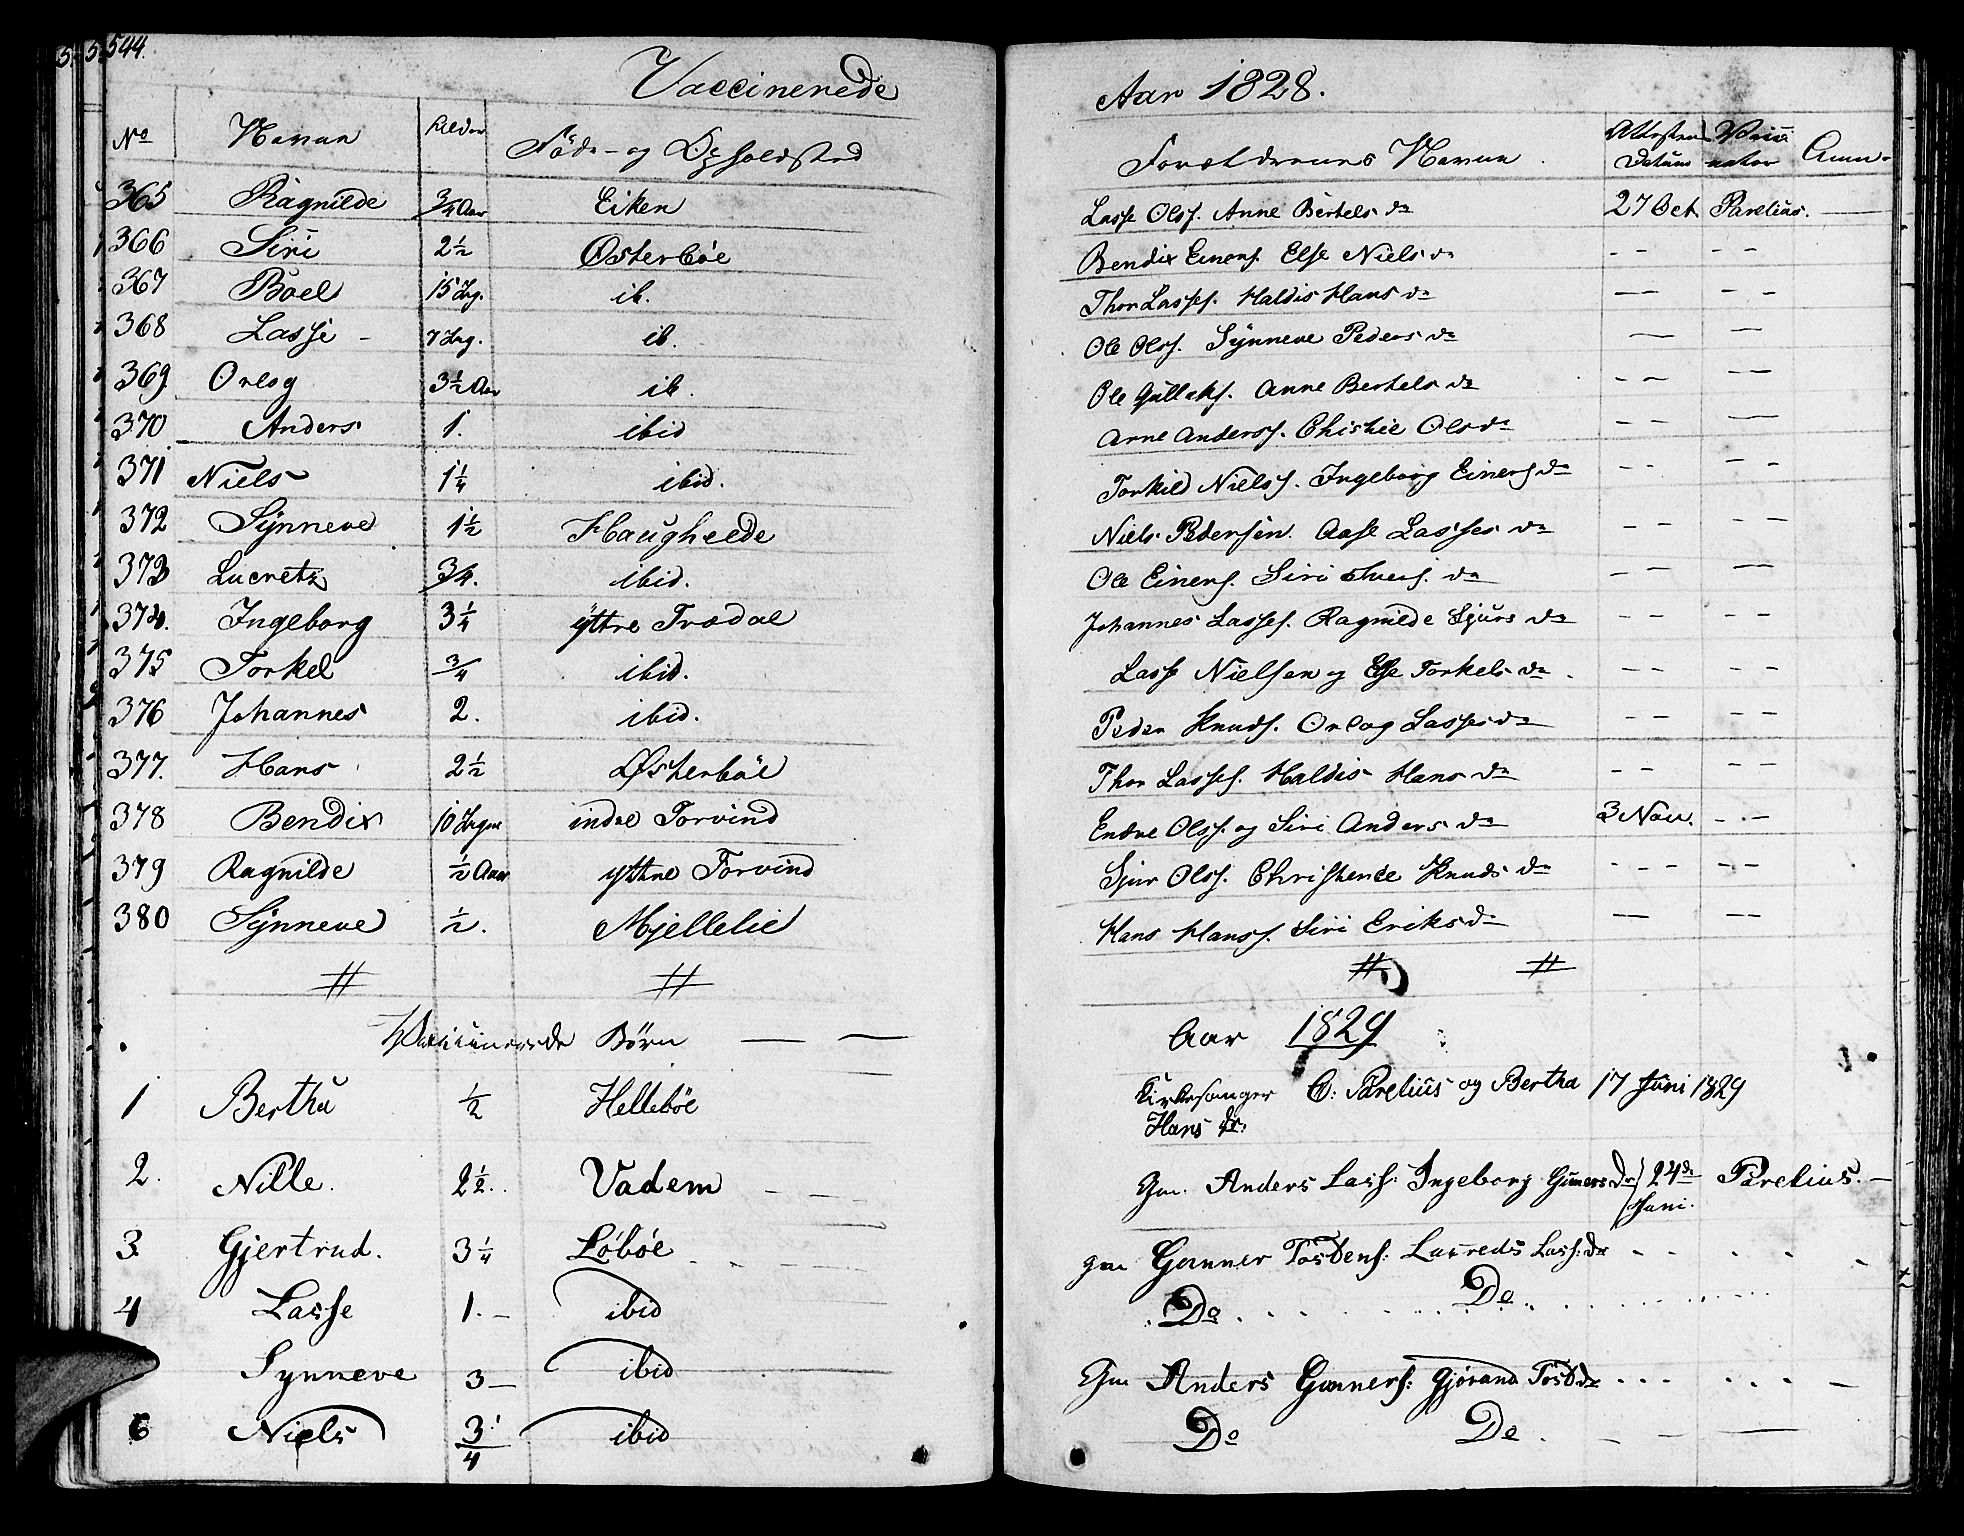 544.
Vaccinerede Aar 1828.
No Navne Alder Føde- og Opholdsted Forældrenes Navne Attestens Datum Vaccinator Anm.
365 Ragnilde 3/4 Aar Eiken Lasse Olss. Anne Bertels dr 27 Oct. Parelius. —
366 Siri 2 1/2 Østerböe Bendix Einers. Else Niels dr - - - -
367 Boel 15 Ug. ib. Thor Lasses. Haldis Hans dr — - - -
368 Lasse - 7 Ug. ib. Ole Olss. Synneve Peders dr — —
369 Orlog 3 1/2 Aar ib. Ole Gullaks. Anne Bertels dr - - - -
370 Anders 1. ibid Arne Anderss. Chistie Ols dr - - - —
371 Niels 1 1/4 ibid. Torkild Nielss. Ingeborg Einers dr - - - -
372 Synneve 1 1/2 Haugheede Niels Pedersen. Aase Lasses dr - - - -
373 Lucretz 3/4. ibid. Ole Einers. Siri dr - - - -
374. Ingeborg 3 1/4 yttre Trædal Johannes Lasses. Ragnilde Sjurs dr - - - -
375 Torkel 3/4 ibid. Lasse Nielsen og Else Torkels dr. - - - -
376 Johannes 2. ibid. Peder Knuds. Orlog Lasses dr - - - -
377. Hans 2 1/2 Østerböe Thor Lasses. Haldis Hans dr - - - -
378 Bendix 10 Uger indre Torvind Endre Olss. og Siri Anders dr 3 Nov. - - -
379 Ragnilde 1/2 Aar yttre Torvind Sjur Olss. Christense Knuds dr - - - - -
380 Synneve 1/2. Mjellelie Hans Hanss. Siri Eriks dr — - -
# # # #
Vaccinerede Børn — — Aar 1829
1 Bertha 1/2 Hellebøe Kirkesanger C: Parelius og Bertha 17 Juni 1829
Hans dr:
2. Nille. 2 1/2. Vadem - - Gm. Anders Lass: Ingeborg Guners dr 24de Parelius. -
Juni.
3. Gjertrud. 3 1/4 Løbøe gm Gunner Tostens: Lass: dr - - - -
4 Lasse 1. - ibid Do Do
Synneve 3 - ibid Gm Anders Gunners: Gjørand Tost dr - - -
6 Niels 3/4 ibid Do De - - —